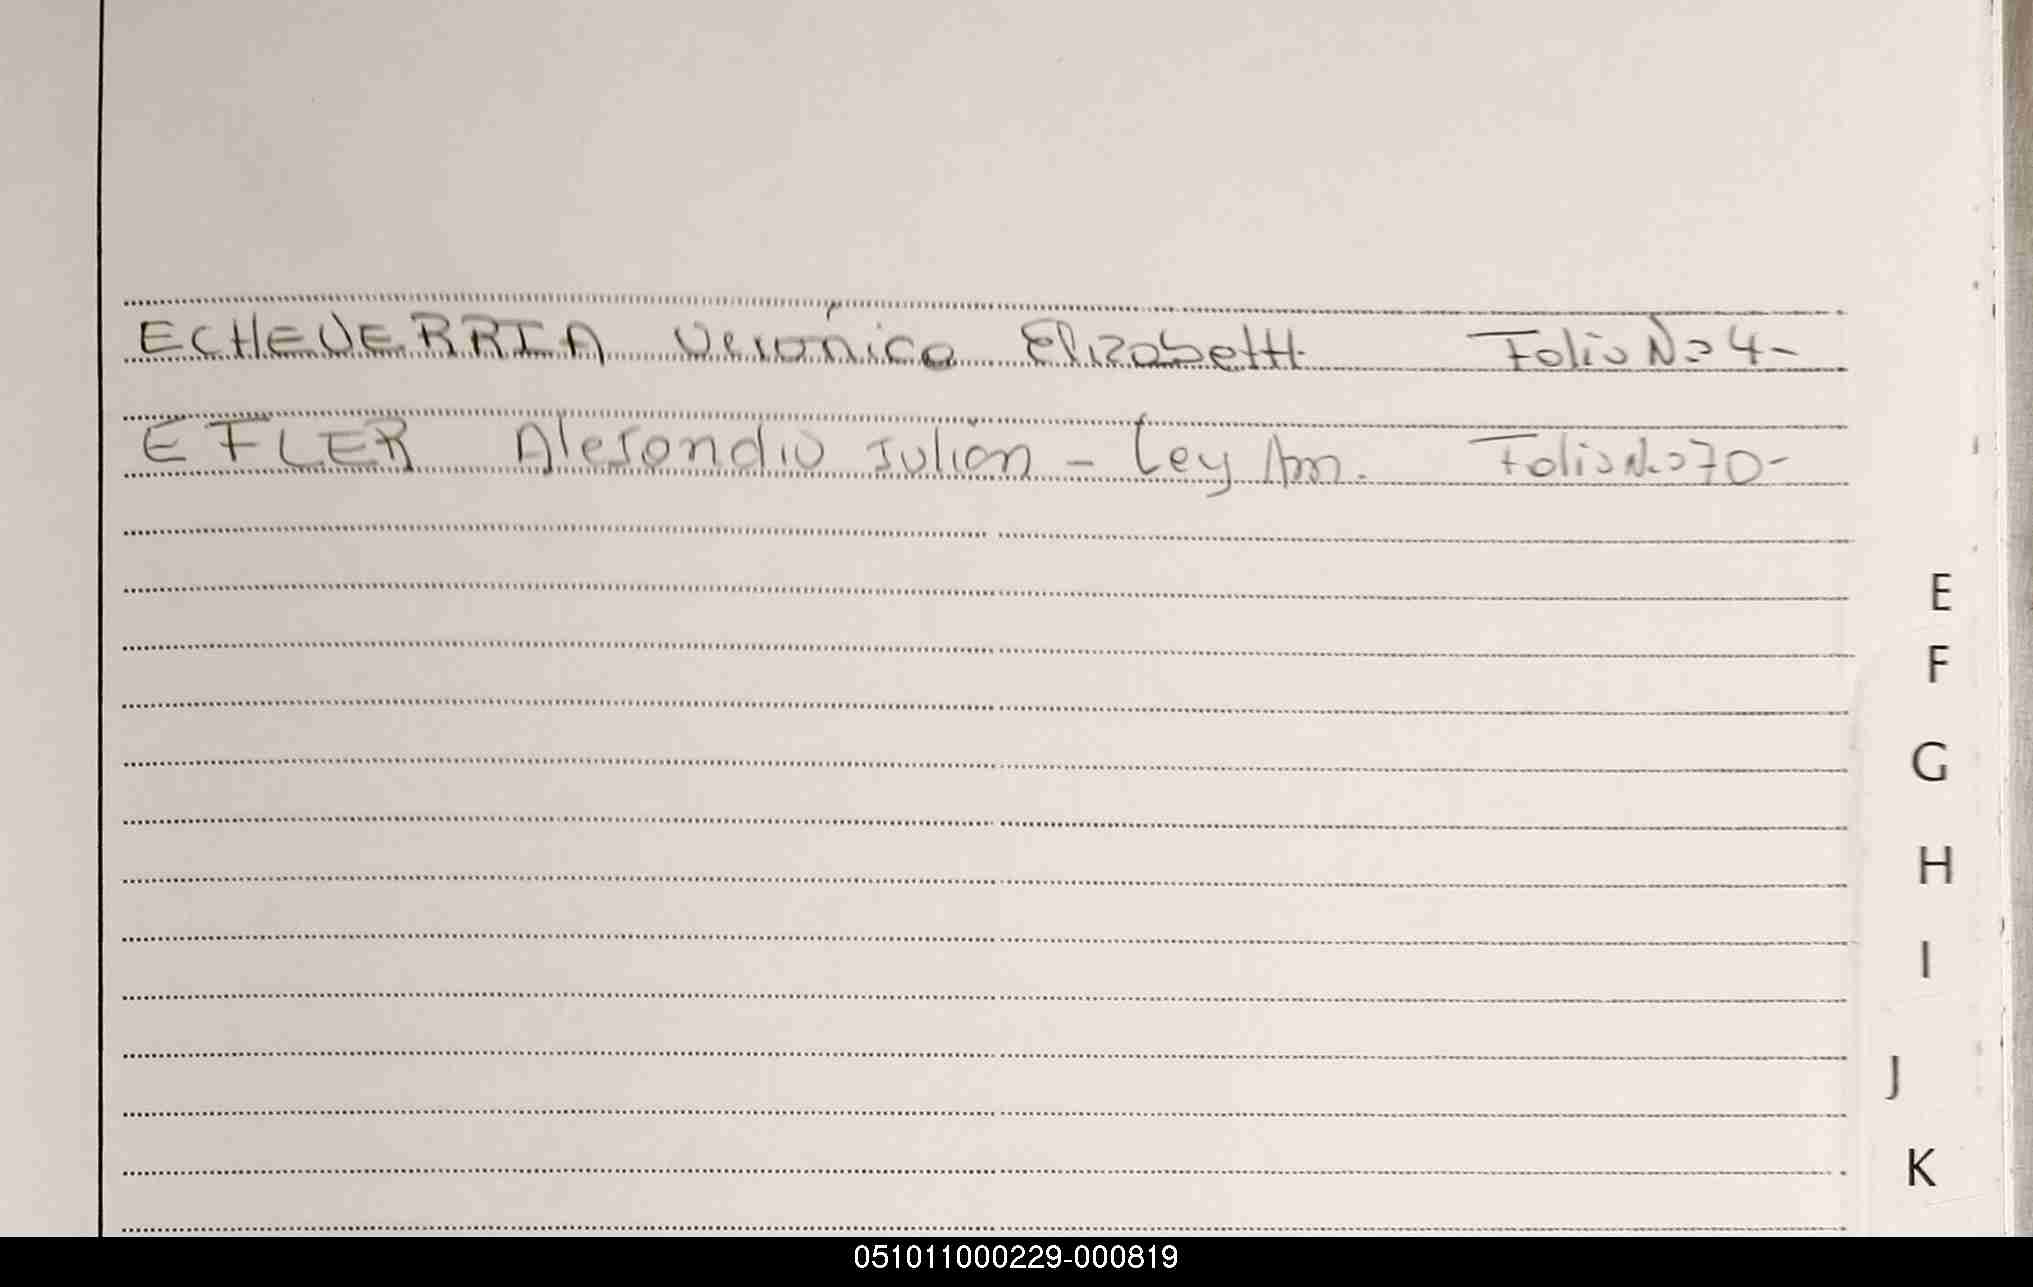 ECHEVERRIA Verónica Elizabeth Folio Nº 4-
EFLER Alejandro Julián - Ley Folio Nº 70-
E
F
G
H
I
J
K
051011000229-000819